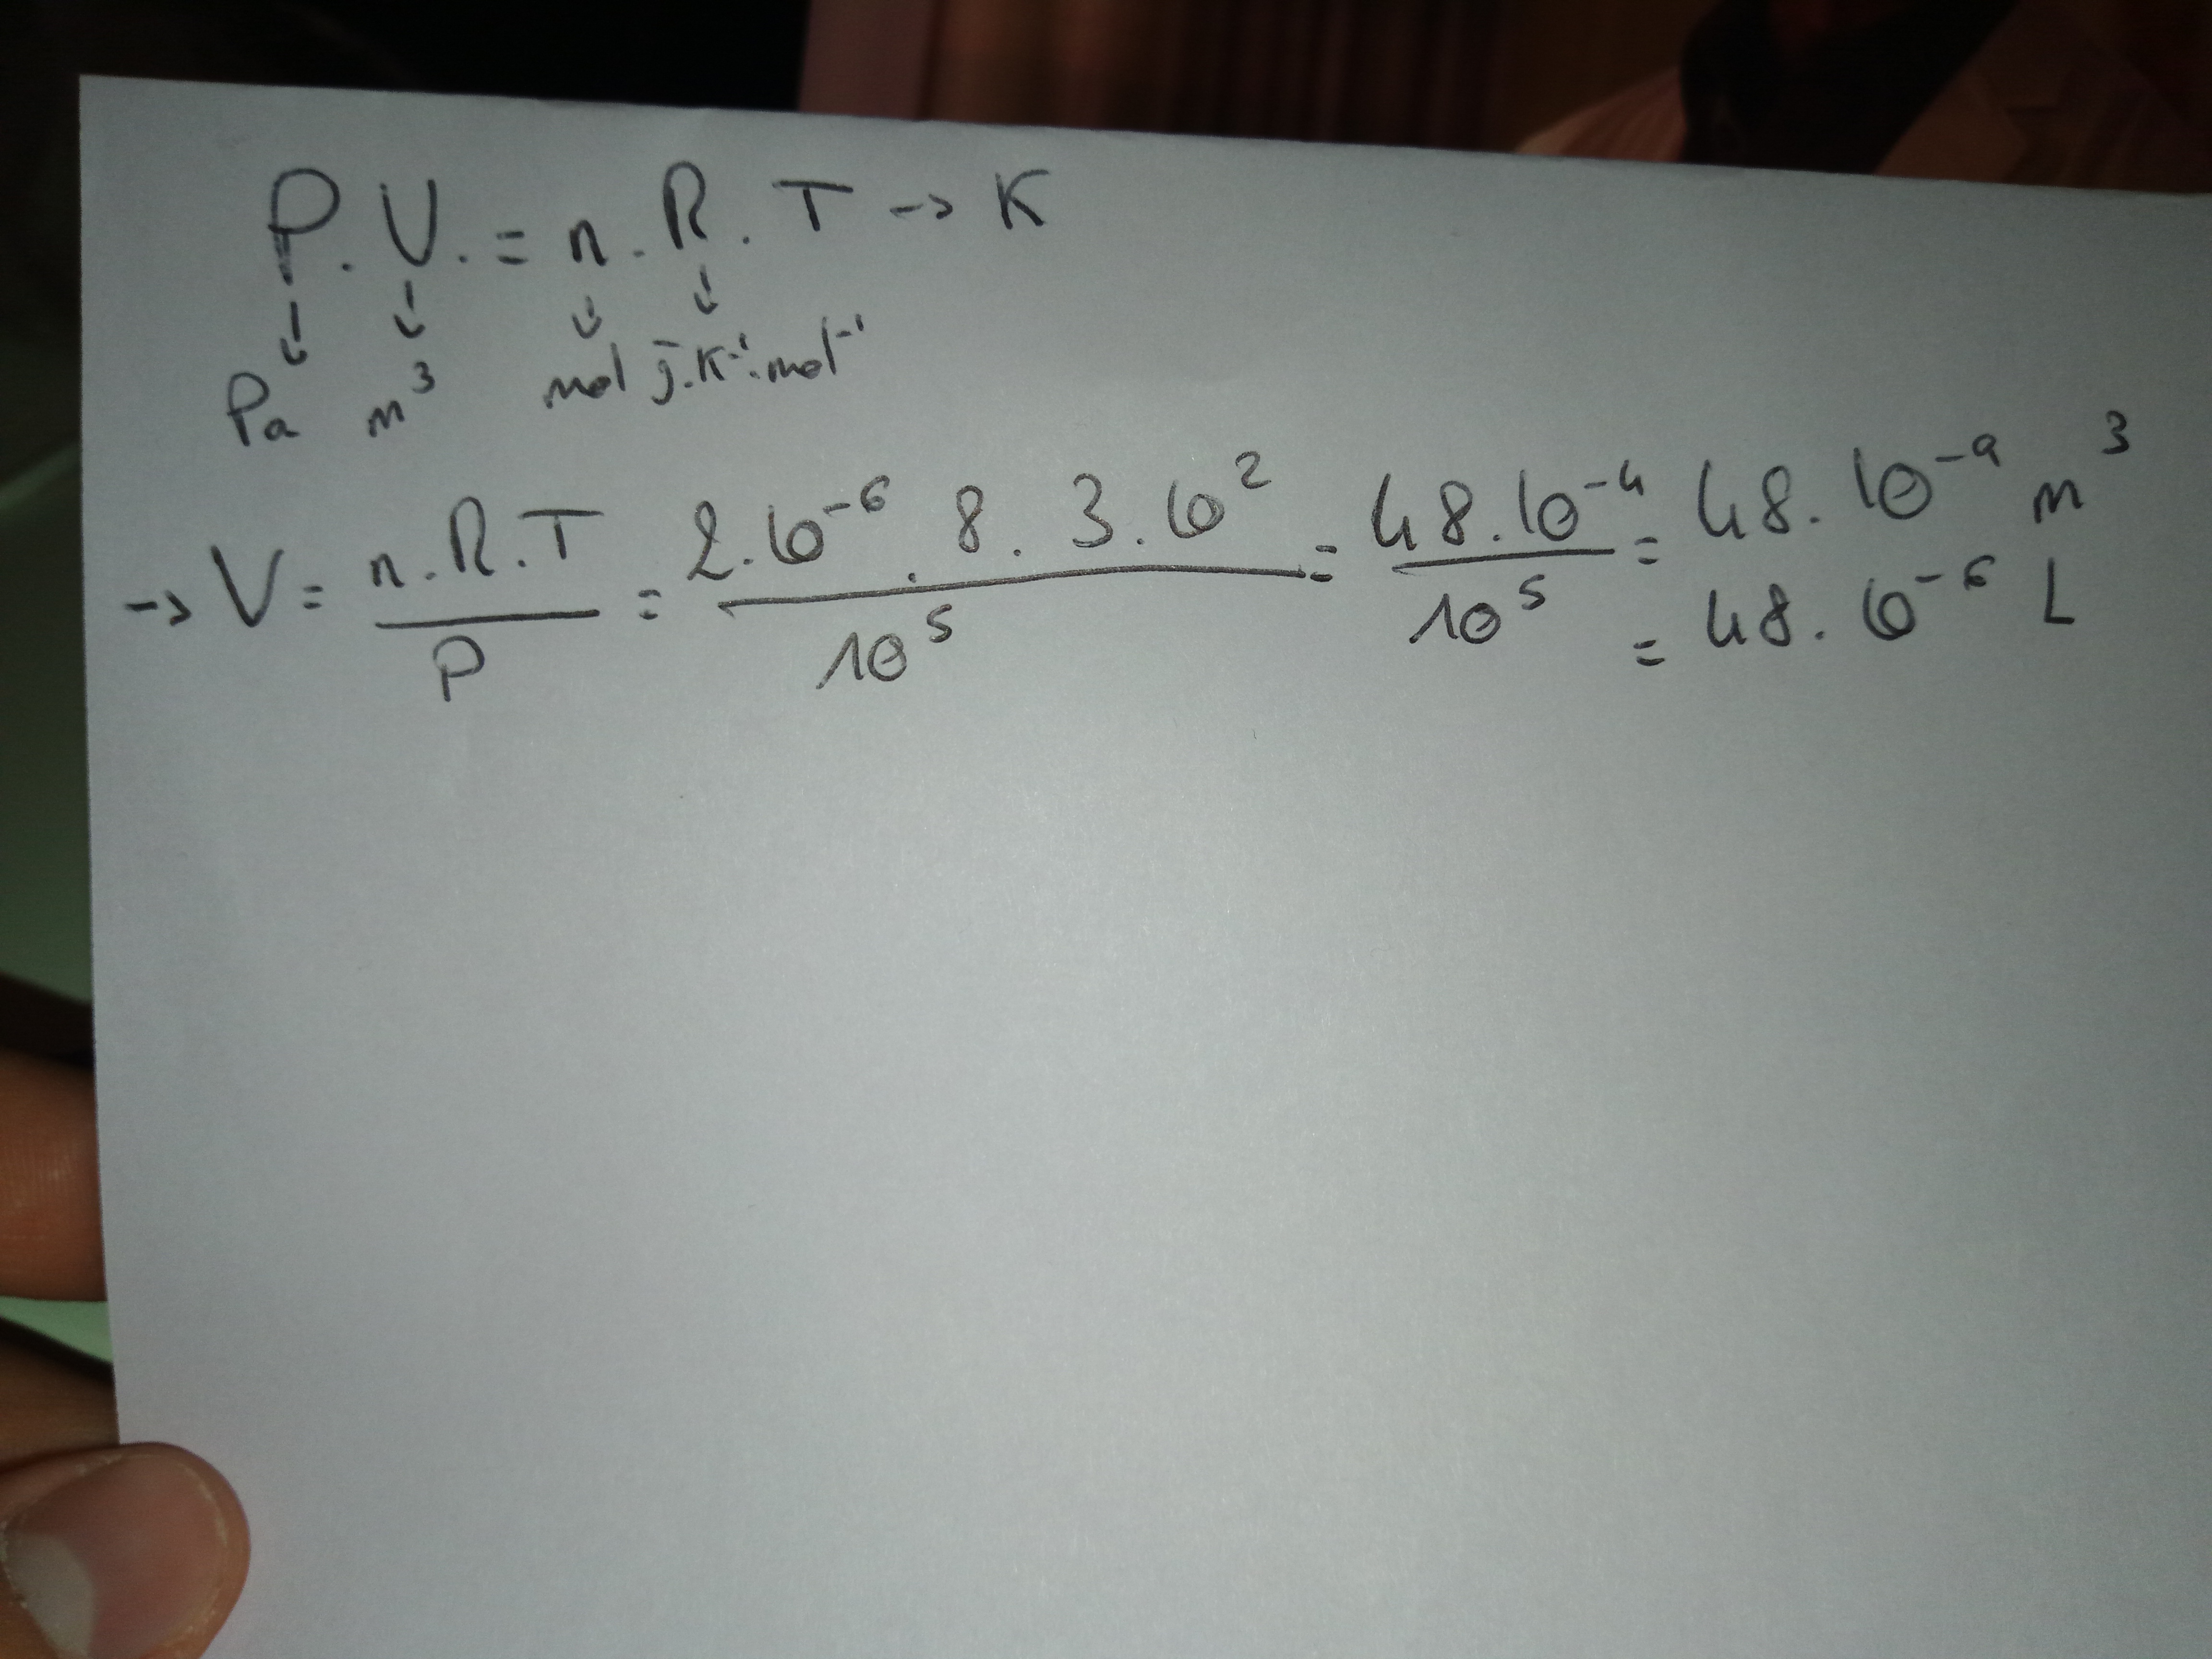 P.V. = n.R.T → K
↓ ↓ ↓ ↓
Pa m³ mol j.K⁻¹.mol⁻¹
→ V = n.R.T / P = 2.10⁻⁶ . 8 . 3.10² / 10⁵ = 48.10⁻⁴ / 10⁵ = 48.10⁻⁹ m³
= 48.10⁻⁶ L